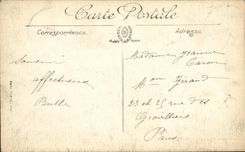 Carte Postale
Correspondance
Adresse
Souvenir
affectueux
Madame Jeanne
Caron
Mon Girand
23 et 25 rue des
Gravilliers
Paris